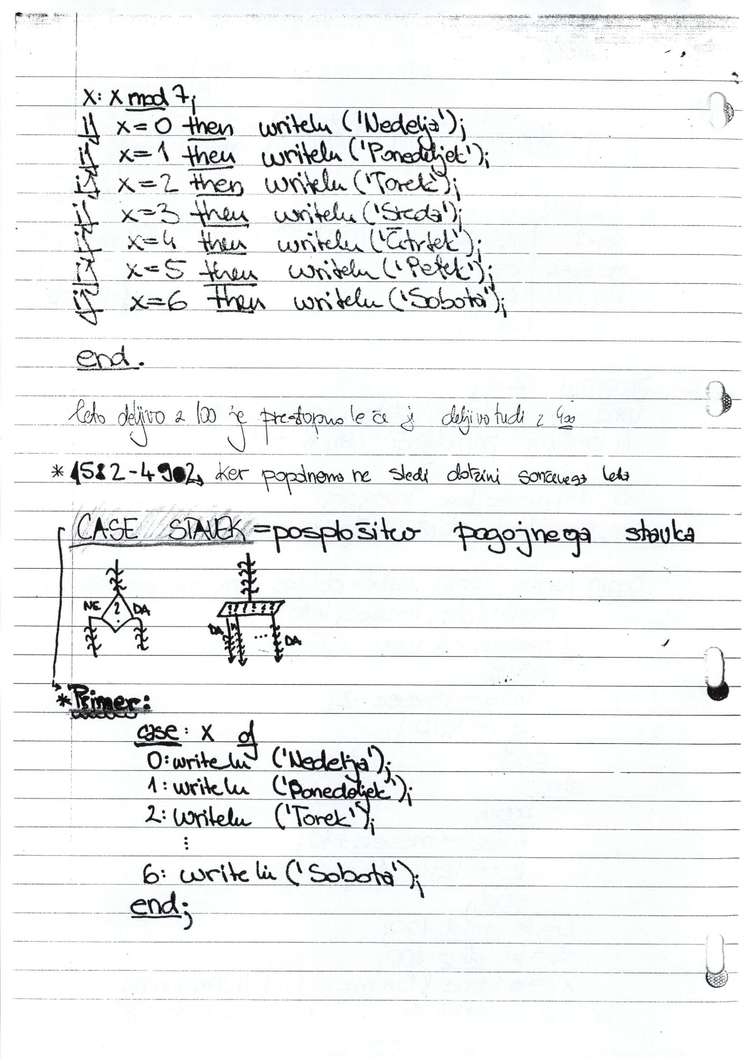 x: x mod 7;
if x=0 then writeln ('Nedelja');
if x=1 then writeln ('Ponedeljek');
if x=2 then writeln ('Torek');
if x=3 then writeln ('Sreda');
if x=4 then writeln ('Četrtek');
if x=5 then writeln ('Petek');
if x=6 then writeln ('Sobota');
end.
leto deljivo z 100 je prestopno le če je deljivo tudi z 400
* 1582-4902, ker popolnoma ne sledi dolžini sončnega leta
CASE STAVEK = posplošitev pogojnega stavka
NE ? DA
DA ... DA
* Primer:
case: x of
0: writeln ('Nedelja');
1: writeln ('Ponedeljek');
2: writeln ('Torek');
⋮
6: writeln ('Sobota');
end;